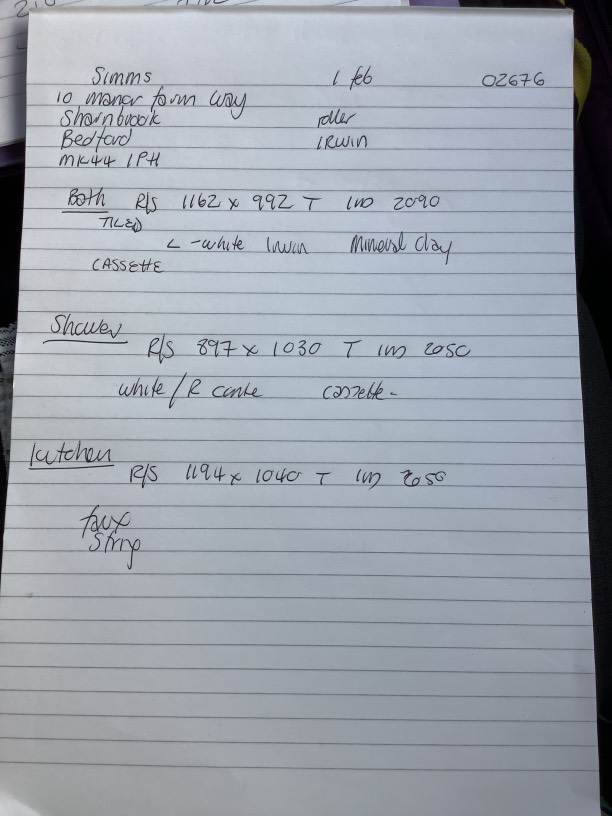 Simms 1 feb 02676
10 manor farm way
Sharnbrook roller
Bedford IRWIN
MK44 1PH
Bath R/S 1162 x 992 T IW 2090
TILED
L - white Irwin Mineral Clay
CASSETTE
Shower
R/S 897 x 1030 T IW 2050
white / R cassette -
kitchen
R/S 1194 x 1040 T IW 2050
faux
Strip